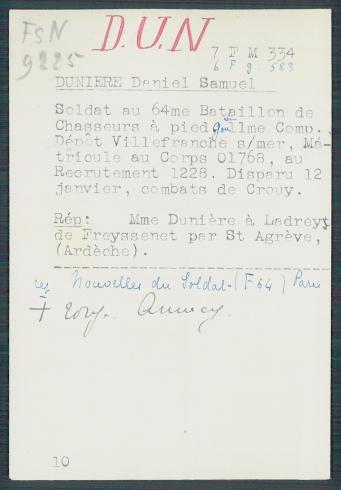 FSN
9225
D.U.N
7 F M 334
6 F g 583
DUNIERE Daniel Samuel
Soldat au 64me Bataillon de
Chasseurs à pied 11me Comp.,
Dépôt Villefranche s/mer, Ma-
tricule au Corps 01768, au
Recrutement 1228. Disparu 12
janvier, combats de Crouy.
Rép: Mme Dunière à Ladreyt
de Freyssenet par St Agrève,
(Ardèche).
Nouvelles du Soldat-(F64) Paris
Annecy
10